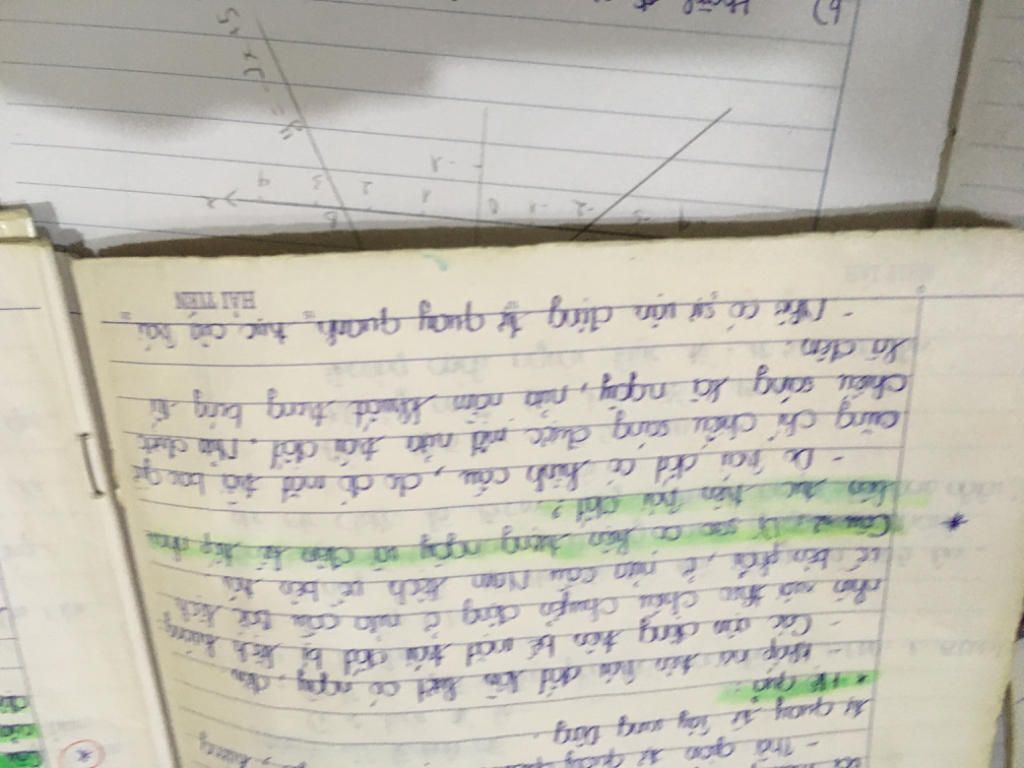 - Thời gian tự quay
tự quay từ Tây sang Đông.
* Hệ quả:
- Khắp nơi trên trái đất lần lượt có ngày, đêm.
- Các vật đông trên bề mặt trái đất bị lệch hướng.
nhìn xuôi theo chiều chuyển động ở nửa cầu Bắc lệch
về bên phải, ở nửa cầu Nam lệch về bên trái.
* Câu 2: Vì sao có hiện tượng ngày và đêm kế tiếp nhau
liên tục trên trái đất?
- Do trái đất có hình cầu, do đó mặt trời bao giờ
cũng chỉ chiếu sáng được một nửa trái đất. Nửa được
chiếu sáng là ngày, nửa nằm khuất trong bóng tối
là đêm.
- Nhờ có sự vận động tự quay quanh trục của trái
HẢI TIẾN
b)
-3 -2 -1 0 1 2 3 4 x
-1